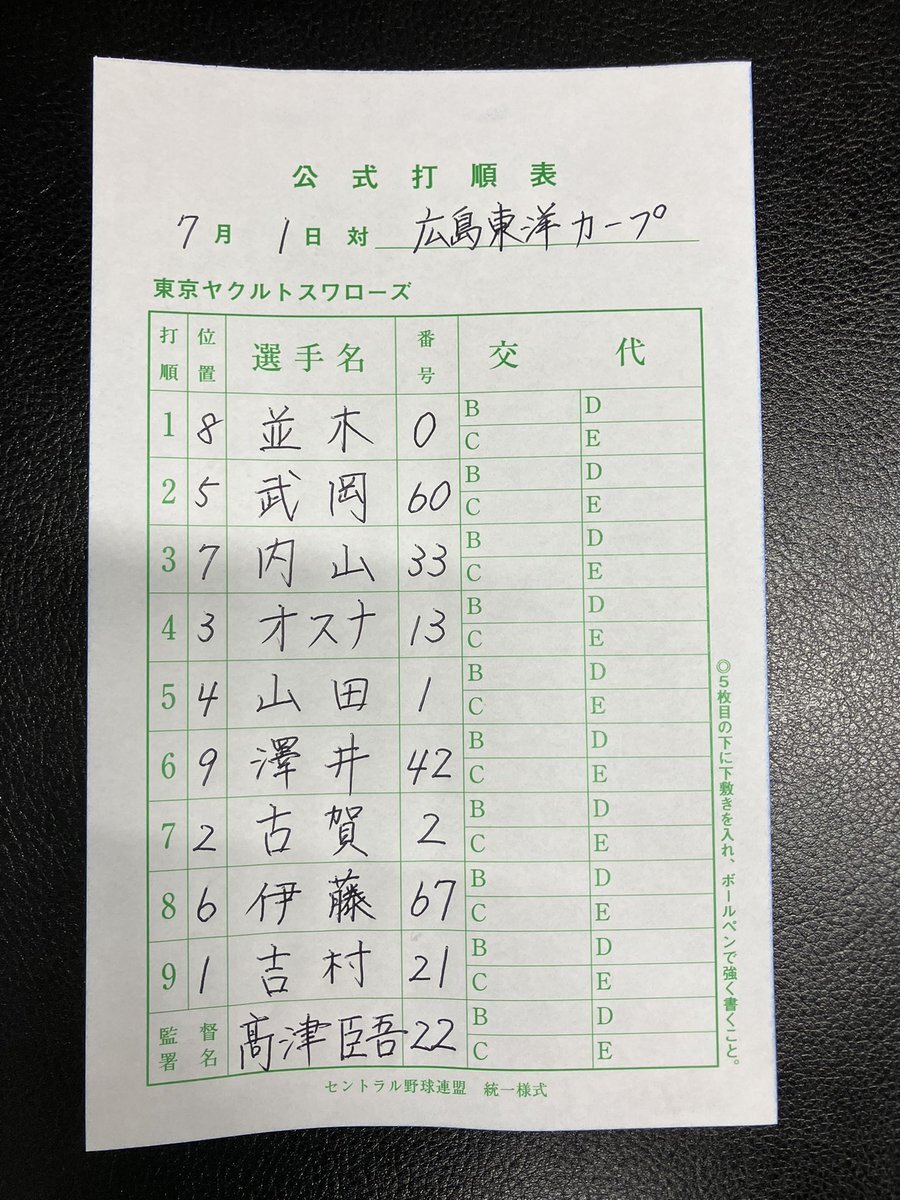 公式打順表
7月 1日 対 広島東洋カープ
東京ヤクルトスワローズ
打順 位置 選手名 番号 交代
1 8 並木 0 B D
C E
2 5 武岡 60 B D
C E
3 7 内山 33 B D
C E
4 3 オスナ 13 B D
C E
5 4 山田 1 B D
C E
6 9 澤井 42 B D
C E
7 2 古賀 2 B D
C E
8 6 伊藤 67 B D
C E
9 1 吉村 21 B D
C E
監督署名 髙津臣吾 22 B D
C E
セントラル野球連盟 統一様式
◎5枚目の下に下敷きを入れ、ボールペンで強く書くこと。